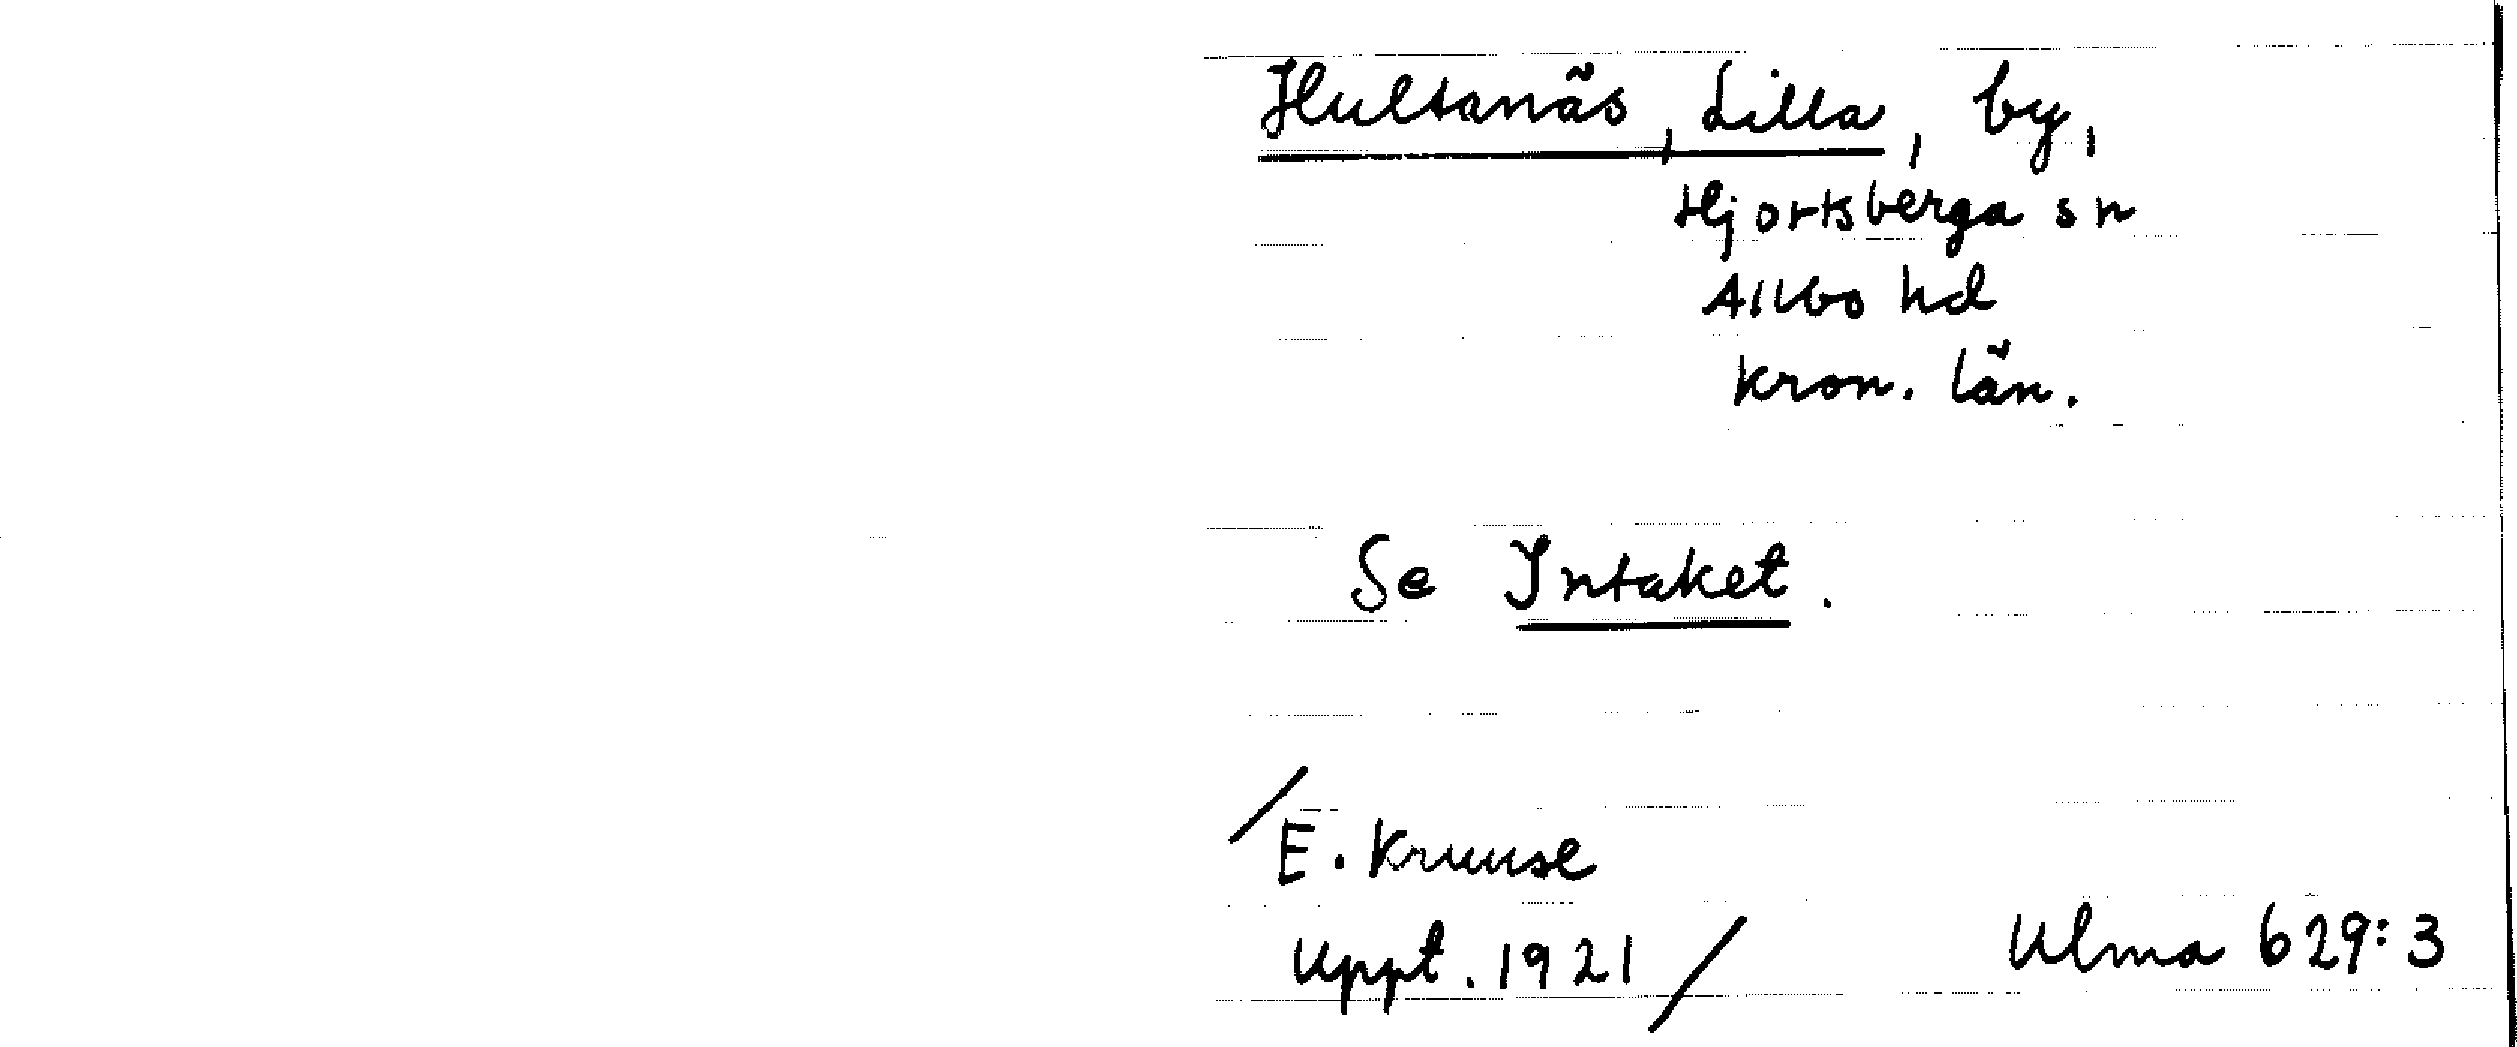 Hultanäs, Lilla, by,
Hjortsberga sn
Allbo hd
Kron. län.
Se Intaket.
/E. Kruuse
Uppt. 1921/
Ulma 629:3